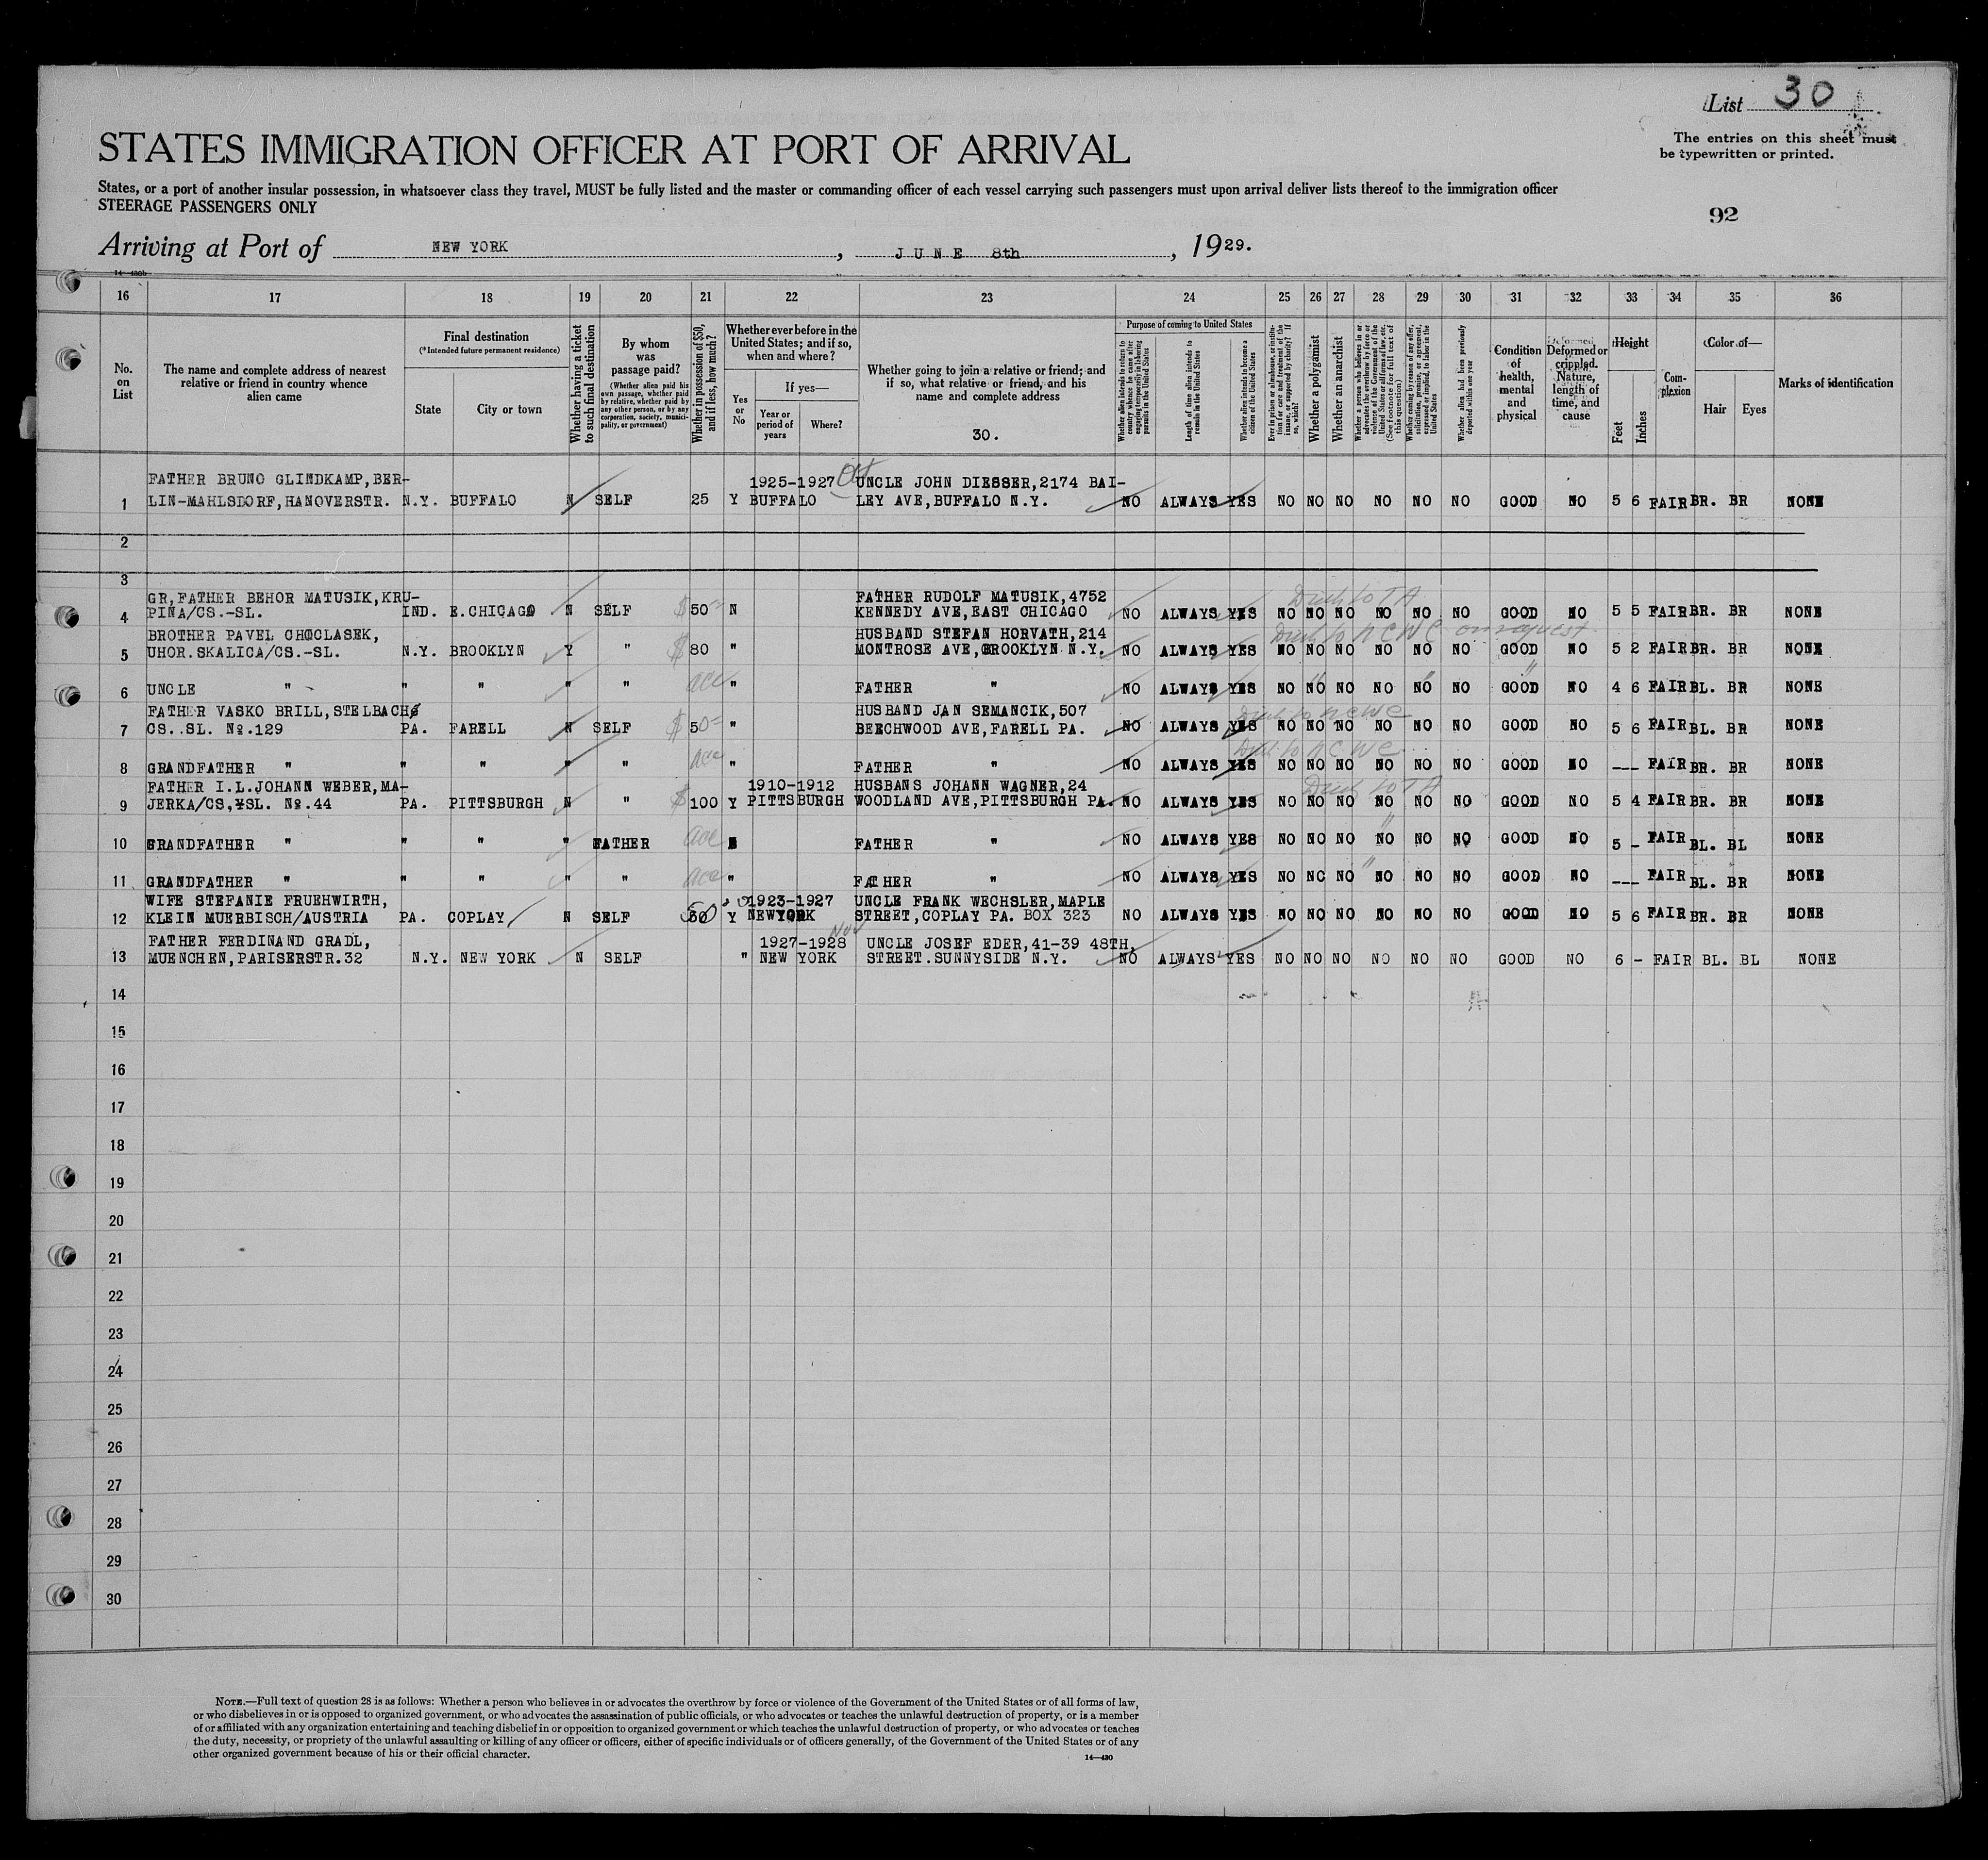 List 30
The entries on this sheet must
be typewritten or printed.
STATES IMMIGRATION OFFICER AT PORT OF ARRIVAL
States, or a port of another insular possession, in whatsoever class they travel, MUST be fully listed and the master or commanding officer of each vessel carrying such passengers must upon arrival deliver lists thereof to the immigration officer
STEERAGE PASSENGERS ONLY
92
Arriving at Port of NEW YORK, JUNE 8th, 1929.
16 17 18 19 20 21 22 23 24 25 26 27 28 29 30 31 32 33 34 35 36
No. on List
The name and complete address of nearest relative or friend in country whence alien came
Final destination
(*Intended future permanent residence)
State
City or town
Whether having a ticket to such final destination
By whom was passage paid?
(Whether alien paid his own passage, whether paid by relative, whether paid by any other person, or by any corporation, society, municipality, or government)
Whether in possession of $50, and if less, how much?
Whether ever before in the United States; and if so, when and where?
Yes or No
If yes—
Year or period of years
Where?
Whether going to join a relative or friend; and if so, what relative or friend, and his name and complete address
30.
Purpose of coming to United States
Whether alien intends to return to country whence he came after engaging temporarily in laboring pursuits in the United States
Length of time alien intends to remain in the United States
Whether alien intends to become a citizen of the United States
Ever in prison or almshouse, or institution for care and treatment of the insane, or supported by charity? If so, which?
Whether a polygamist
Whether an anarchist
Whether a person who believes in or advocates the overthrow by force or violence of the Government of the United States or all forms of law, etc. (See footnote for full text of this question)
Whether coming by reason of any offer, solicitation, promise, or agreement, expressed or implied, to labor in the United States
Whether alien had been previously deported within one year
Condition of health, mental and physical
Deformed or crippled. Nature, length of time, and cause
Height
Feet
Inches
Complexion
Color of—
Hair
Eyes
Marks of identification
FATHER BRUNO GLINDKAMP,BER- 1925-1927 UNCLE JOHN DIESSER,2174 BAI-
1 LIN-MAHLSDORF,HANOVERSTR. N.Y. BUFFALO N SELF 25 Y BUFFALO LEY AVE,BUFFALO N.Y. NO ALWAYS YES NO NO NO NO NO NO GOOD NO 5 6 FAIR BR. BR NONE
2
3
GR,FATHER BEHOR MATUSIK,KRU- FATHER RUDOLF MATUSIK,4752
4 PINA/CS.-SL. IND. E.CHICAGO N SELF $50 N KENNEDY AVE,EAST CHICAGO NO ALWAYS YES NO NO NO NO NO NO GOOD NO 5 5 FAIR BR. BR NONE
BROTHER PAVEL CHOCLASEK, HUSBAND STEFAN HORVATH,214
5 UHOR.SKALICA/CS.-SL. N.Y. BROOKLYN Y " $80 " MONTROSE AVE,BROOKLYN N.Y. NO ALWAYS YES NO NO NO NO NO NO GOOD NO 5 2 FAIR BR. BR NONE
6 UNCLE " " " " " acc " FATHER " NO ALWAYS YES NO NO NO NO NO NO GOOD NO 4 6 FAIR BL. BR NONE
FATHER VASKO BRILL,STELBACH HUSBAND JAN SEMANCIK,507
7 CS..SL. No.129 PA. FARELL N SELF $50 " BEECHWOOD AVE,FARELL PA. NO ALWAYS YES NO NO NO NO NO NO GOOD NO 5 6 FAIR BL. BR NONE
8 GRANDFATHER " " " " " acc " FATHER " NO ALWAYS YES NO NO NO NO NO NO GOOD NO --- FAIR BR. BR NONE
FATHER I.L.JOHANN WEBER,MA- 1910-1912 HUSBANS JOHANN WAGNER,24
9 JERKA/CS,SL. No.44 PA. PITTSBURGH N " $100 Y PITTSBURGH WOODLAND AVE,PITTSBURGH PA. NO ALWAYS YES NO NO NO NO NO NO GOOD NO 5 4 FAIR BR. BR NONE
10 GRANDFATHER " " " " FATHER acc FATHER " NO ALWAYS YES NO NO NO NO NO NO GOOD NO 5 - FAIR BL. BL NONE
11 GRANDFATHER " " " " " acc " FATHER " NO ALWAYS YES NO NO NO NO NO NO GOOD NO --- FAIR BL. BR NONE
WIFE STEFANIE FRUEHWIRTH, 1923-1927 UNCLE FRANK WECHSLER,MAPLE
12 KLEIN MUERBISCH/AUSTRIA PA. COPLAY N SELF 50 Y NEWYORK STREET,COPLAY PA. BOX 323 NO ALWAYS YES NO NO NO NO NO NO GOOD NO 5 6 FAIR BR. BR NONE
FATHER FERDINAND GRADL, 1927-1928 UNCLE JOSEF EDER,41-39 48TH,
13 MUENCHEN,PARISERSTR.32 N.Y. NEW YORK N SELF " NEW YORK STREET.SUNNYSIDE N.Y. NO ALWAYS YES NO NO NO NO NO NO GOOD NO 6 - FAIR BL. BL NONE
14
15
16
17
18
19
20
21
22
23
24
25
26
27
28
29
30
NOTE.—Full text of question 28 is as follows: Whether a person who believes in or advocates the overthrow by force or violence of the Government of the United States or of all forms of law,
or who disbelieves in or is opposed to organized government, or who advocates the assassination of public officials, or who advocates or teaches the unlawful destruction of property, or is a member
of or affiliated with any organization entertaining and teaching disbelief in or opposition to organized government or which teaches the unlawful destruction of property, or who advocates or teaches
the duty, necessity, or propriety of the unlawful assaulting or killing of any officer or officers, either of specific individuals or of officers generally, of the Government of the United States or of any
other organized government because of his or their official character.
14—430